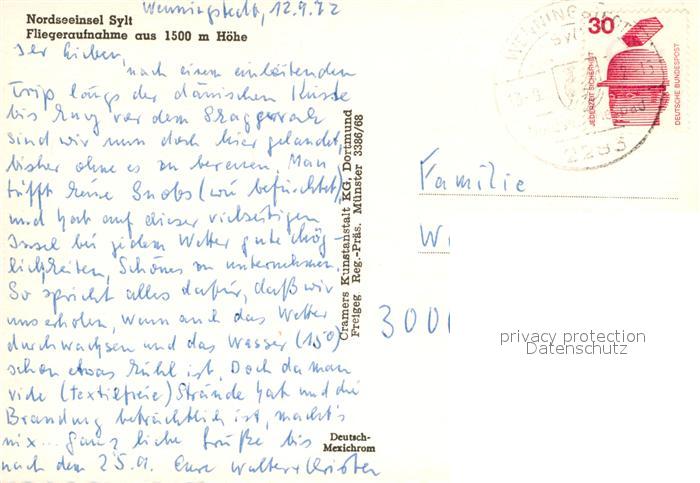 Wenningstedt, 12.9.72
Nordseeinsel Sylt
Fliegeraufnahme aus 1500 m Höhe
Ihr Lieben,
nach einem einleitenden
Trip längs der dänischen Küste
bis kurz vor dem Skagerrak
sind wir nun doch hier gelandet,
bisher ohne es zu bereuen. Man
trifft keine Snobs (wie befürchtet)
und hat auf dieser vielseitigen
Insel bei jedem Wetter gute Mög-
lichkeiten, Schönes zu unternehmen.
So spricht alles dafür, daß wir
uns erholen, wenn auch das Wetter
durchwachsen und das Wasser (15°)
schon etwas kühl ist. Doch da man
viele (textilfreie) Strände hat und die
Brandung beträchtlich ist, macht's
nix... Ganz liebe Grüße bis
nach dem 25.9. Eure Walter +
Cramers Kunstanstalt KG, Dortmund
Freigeg. Reg.-Präs. Münster 3386/68
Deutsch-
Mexichrom
30
JEDERZEIT SICHERHEIT
DEUTSCHE BUNDESPOST
WENNINGSTEDT
2283
Familie
W
3000
privacy protection
Datenschutz